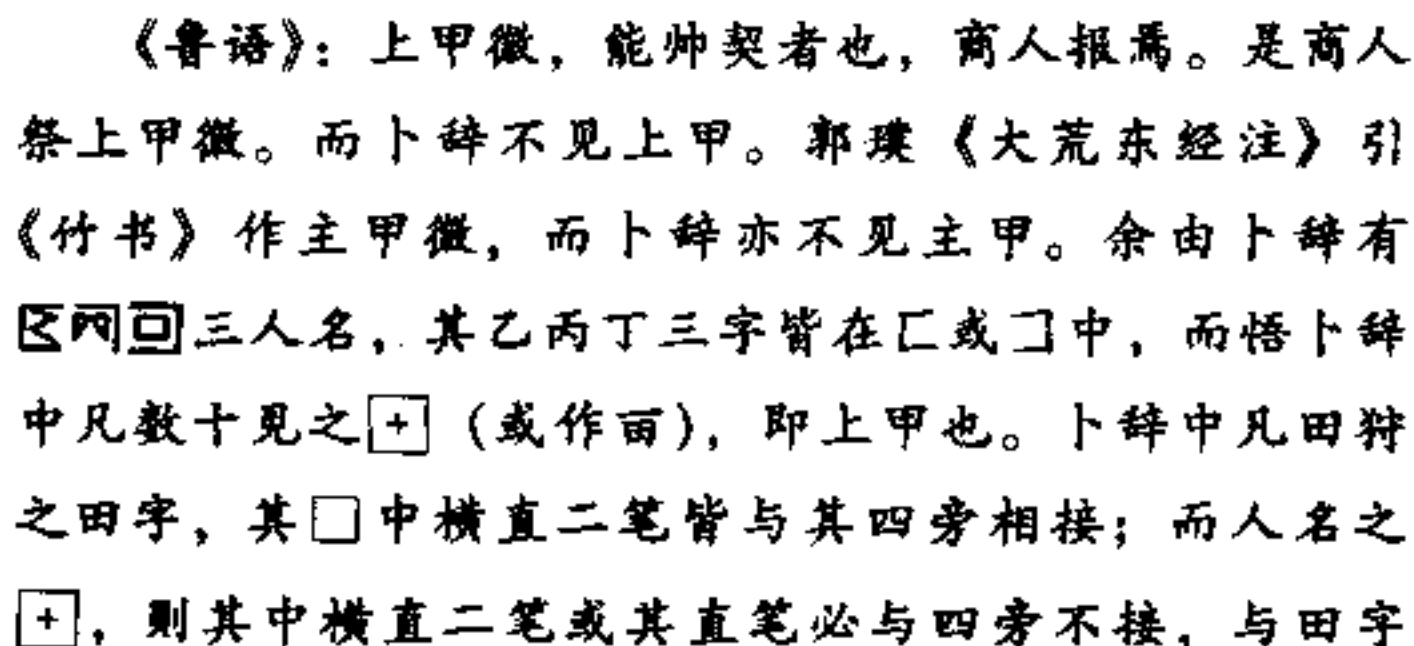 《鲁语》：上甲微，能帅契者也，商人报焉。是商人
祭上甲微。而卜辞不见上甲。郭璞《大荒东经注》引
《竹书》作主甲微，而卜辞亦不见主甲。余由卜辞有
三人名，其乙丙丁三字皆在匚或コ中，而悟卜辞
中凡数十见之田（或作亩），即上甲也。卜辞中凡田狩
之田字，其囗中横直二笔皆与其四旁相接；而人名之
田，则其中横直二笔或其直笔必与四旁不接，与田字